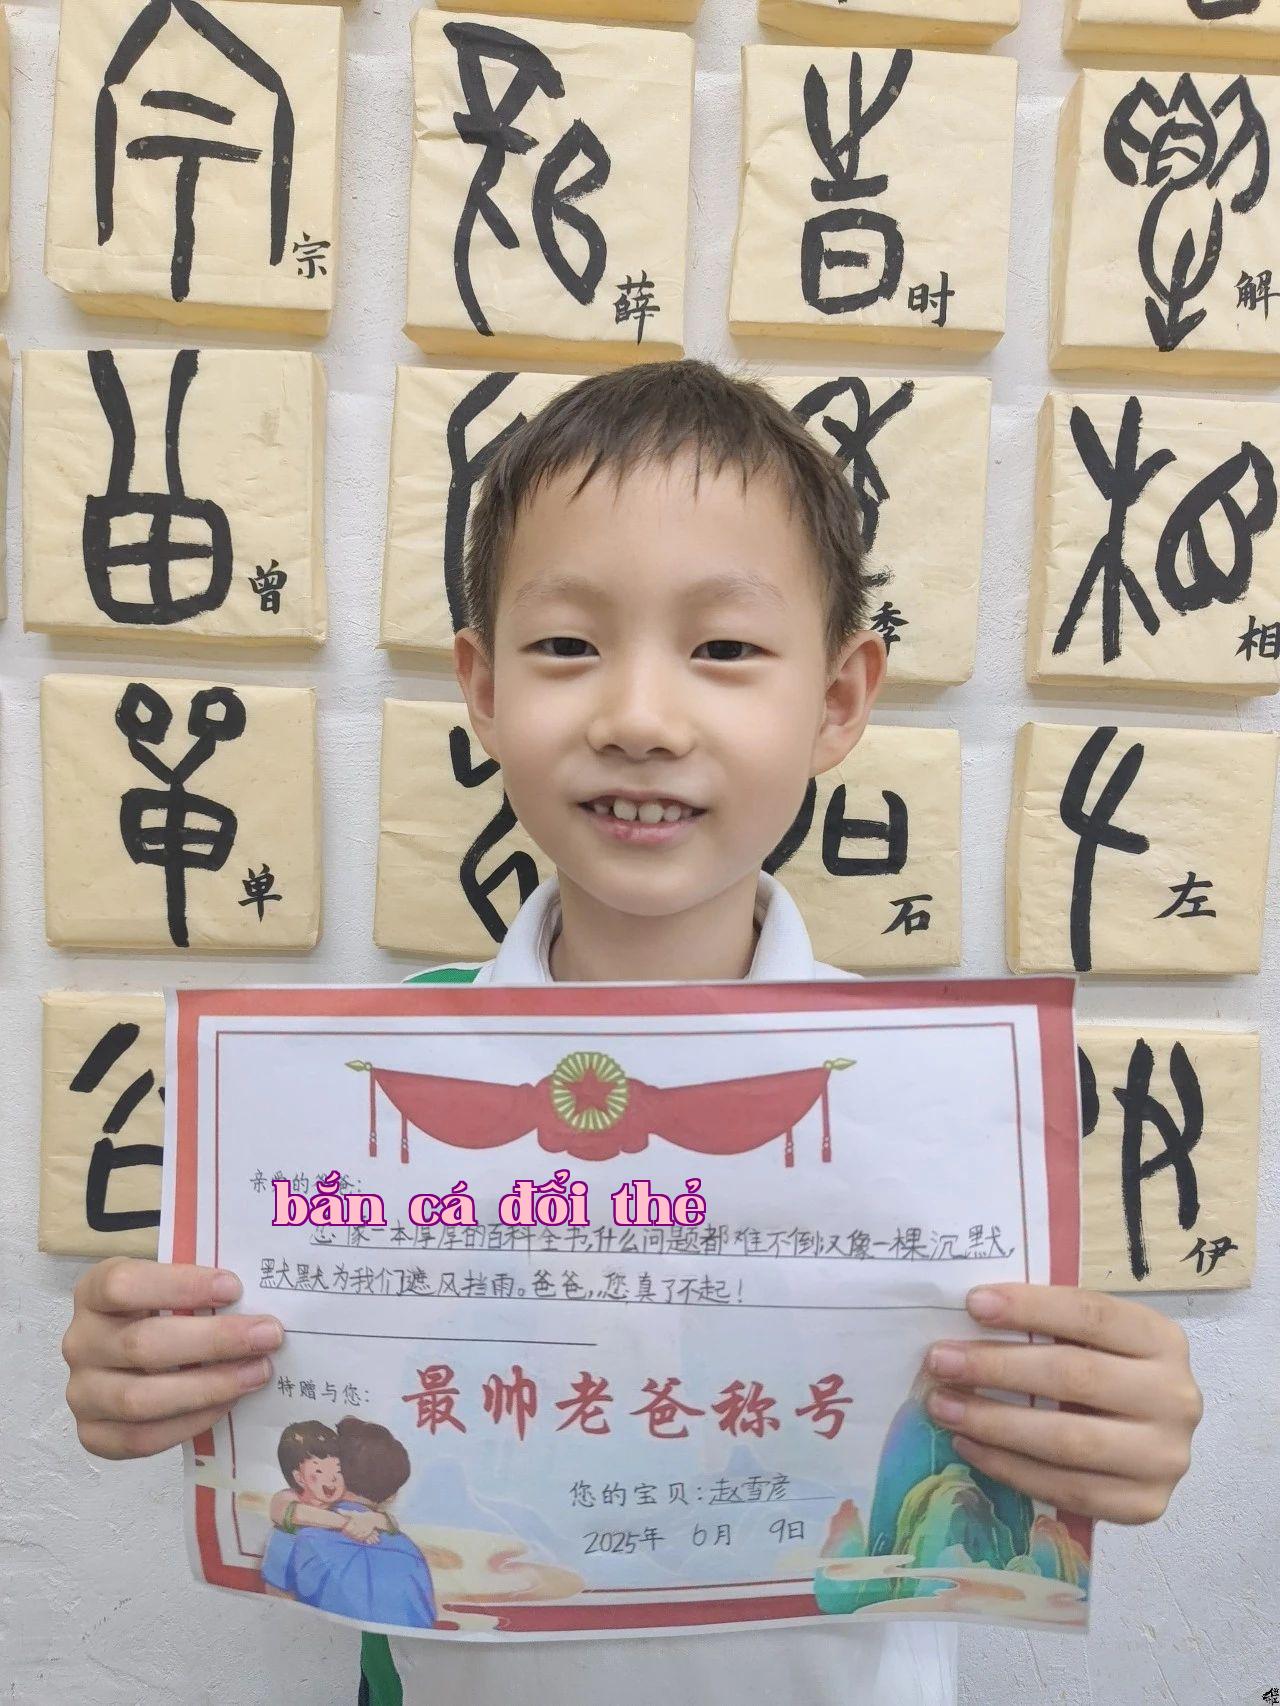 宗
薛
时
解
曾
季
相
单
石
左
伊
亲爱的爸爸：
bắn cá đổi thẻ
您像一本厚厚的百科全书，什么问题都难不倒，又像一棵沉默，
默默为我们遮风挡雨。爸爸，您真了不起！
特赠与您：
最帅老爸称号
您的宝贝：赵雪彦
2025年 6月 9日